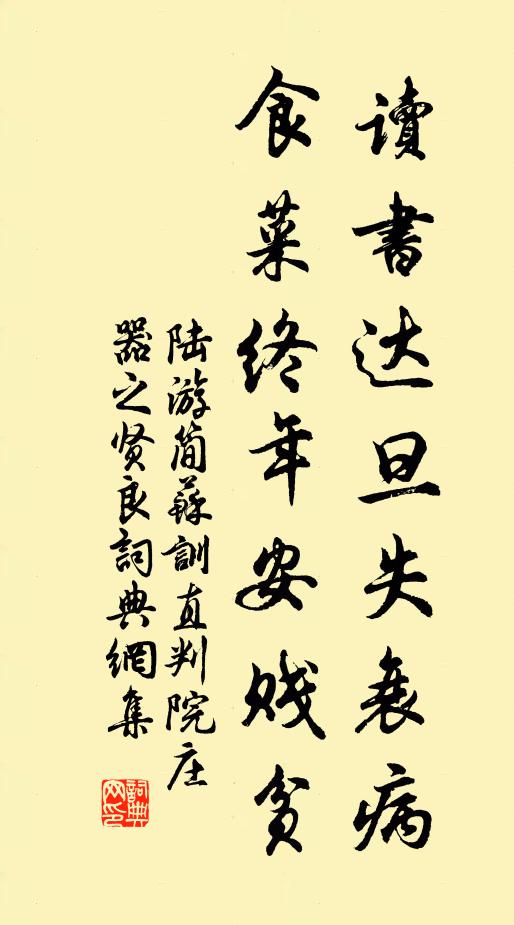 讀書达旦失衰病
食菜終年安贱貧
陆游简蘇訓直判院庄
器之贤良詞典網集
詞典网印